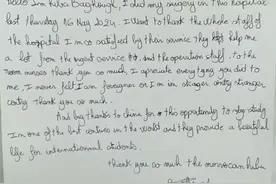 Hello I'm Hiba Baghough, I did my surgery in this hospital
last thursday 14 Nov 2024. I want to thank the whole staff of
the hospital I'm so satisfied by their service they help me
a lot from the urgent service to and the operation staff. to the
nurses thank you so much, I apreciate everything you did to
me, I never felt I am foreigner or I'm in stranger country
contry thank you so much.
And big thanks to china for this opportunity to study
I'm one of the best contries in the world and they provide a beautiful
life for international students.
thank you so much the moroccan hiba